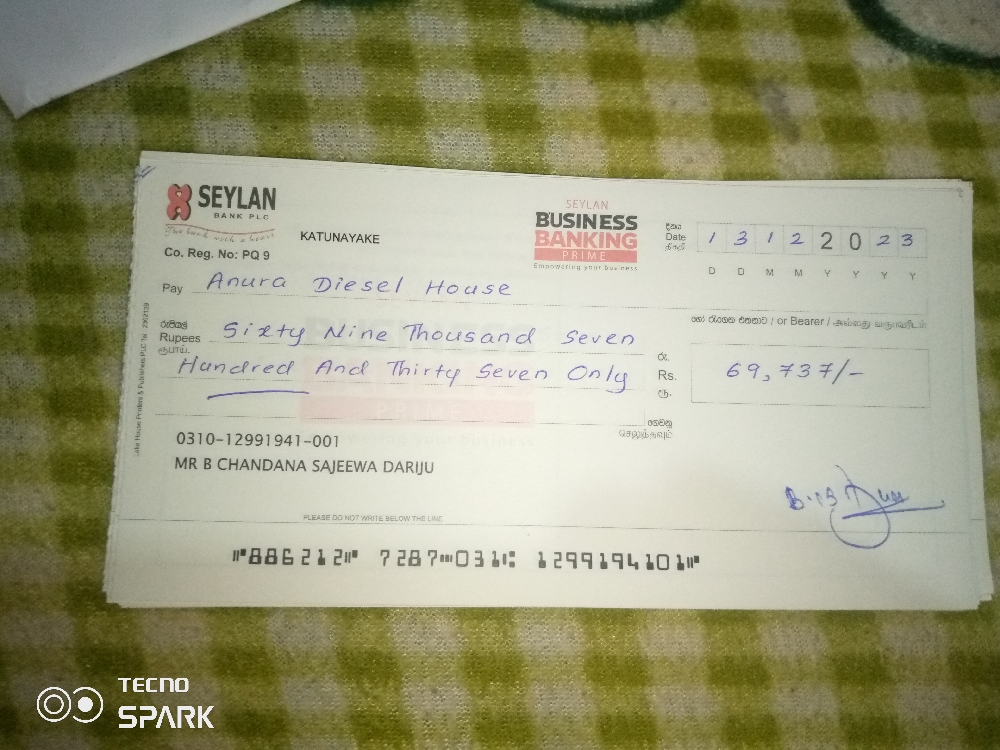 SEYLAN
BANK PLC
The bank with a heart
Co. Reg. No: PQ 9
KATUNAYAKE
SEYLAN
BUSINESS
BANKING
PRIME
Empowering your business
දිනය
Date
திகதி
1 3 1 2 2 0 2 3
D D M M Y Y Y Y
Pay Anura Diesel House
හෝ රැගෙන එන්නාට / or Bearer / அல்லது வருபவரிடம்
රුපියල්
Rupees
ரூபாய்
Sixty Nine Thousand Seven
Hundred And Thirty Seven Only
රු.
Rs.
ரூ.
69,737/-
ගෙවනු
செலுத்தவும்
0310-12991941-001
MR B CHANDANA SAJEEWA DARIJU
PLEASE DO NOT WRITE BELOW THE LINE
⑈886212⑈ 7287⑉031⑆ 1299194101⑈
Lake House Printers & Publishers PLC
TECNO
SPARK